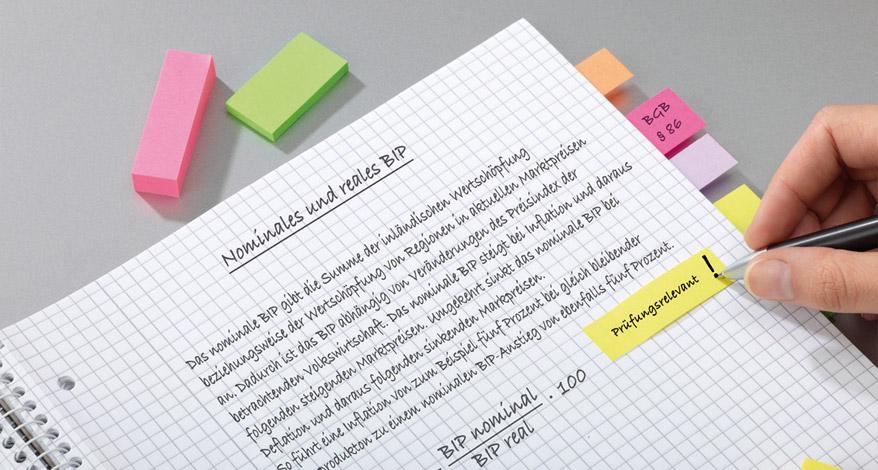 Nominales und reales BIP
Das nominale BIP gibt die Summe der inländischen Wertschöpfung
beziehungsweise der Wertschöpfung von Regionen in aktuellen Marktpreisen
an. Dadurch ist das BIP abhängig von Veränderungen des Preisindex der
betrachtenden Volkswirtschaft. Das nominale BIP steigt bei Inflation und daraus
folgenden steigenden Marktpreisen. Umgekehrt sinkt das nominale BIP bei
Deflation und daraus folgenden sinkenden Marktpreisen.
So führt eine Inflation von zum Beispiel fünf Prozent bei gleich bleibender
produkton zu einem nominalen BIP-Anstieg von ebenfalls fünf Prozent.
BIP nominal
BIP real
· 100
Prüfungsrelevant !
BGB
§ 86